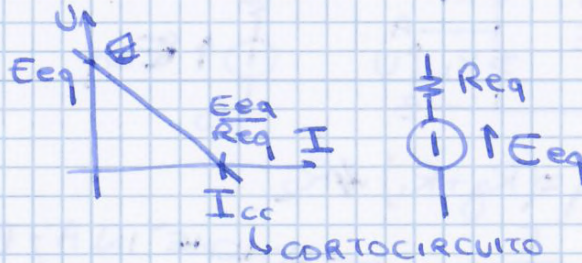 U
Eeq
Eeq
Req
I
Icc
CORTOCIRCUITO
Req
Eeq